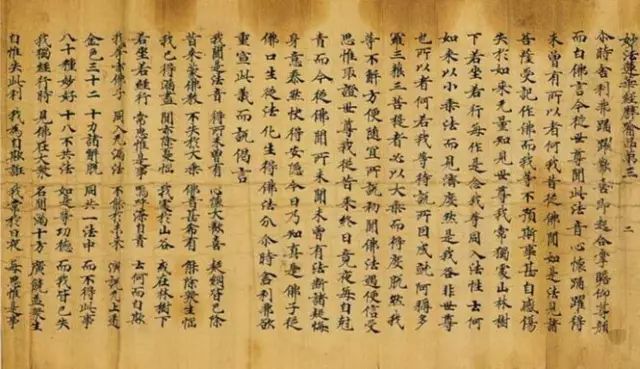 妙法蓮華經譬喻品第三 二
尒時舍利弗踊躍歡喜即起合掌瞻仰尊顏
而白佛言今從世尊聞此法音心懷踊躍得
未曾有所以者何我昔從佛聞如是法見諸
菩薩受記作佛而我等不預斯事甚自感傷
失於如來无量知見世尊我常獨處山林樹
下若坐若行每作是念我等同入法性云何
如來以小乘法而見濟度是我咎非世尊
也所以者何若我等待說所因成就阿耨多
羅三藐三菩提者必以大乘而得度脫然我
等不解方便隨宜所說初聞佛法遇便信受
思惟取證世尊我從昔來終日竟夜每自剋
責而今從佛聞所未聞未曾有法斷諸疑悔
身意泰然快得安隱今日乃知真是佛子從
佛口生從法化生得佛法分尒時舍利弗欲
重宣此義而說偈言
我聞是法音 得所未曾有 心懷大歡喜 疑網皆已除
昔來蒙佛教 不失於大乘 佛音甚希有 能除眾生惱
我已得漏盡 聞亦除憂惱 我處於山谷 或在林樹下
若坐若經行 常思惟是事 嗚呼深自責 云何而自欺
我等亦佛子 同入无漏法 不能於未來 演說无上道
金色三十二 十力諸解脫 同共一法中 而不得此事
八十種妙好 十八不共法 如是等功德 而我皆已失
我獨經行時 見佛在大眾 名聞滿十方 廣饒益眾生
自惟失此利 我為自欺誑 我常於日夜 每思惟是事